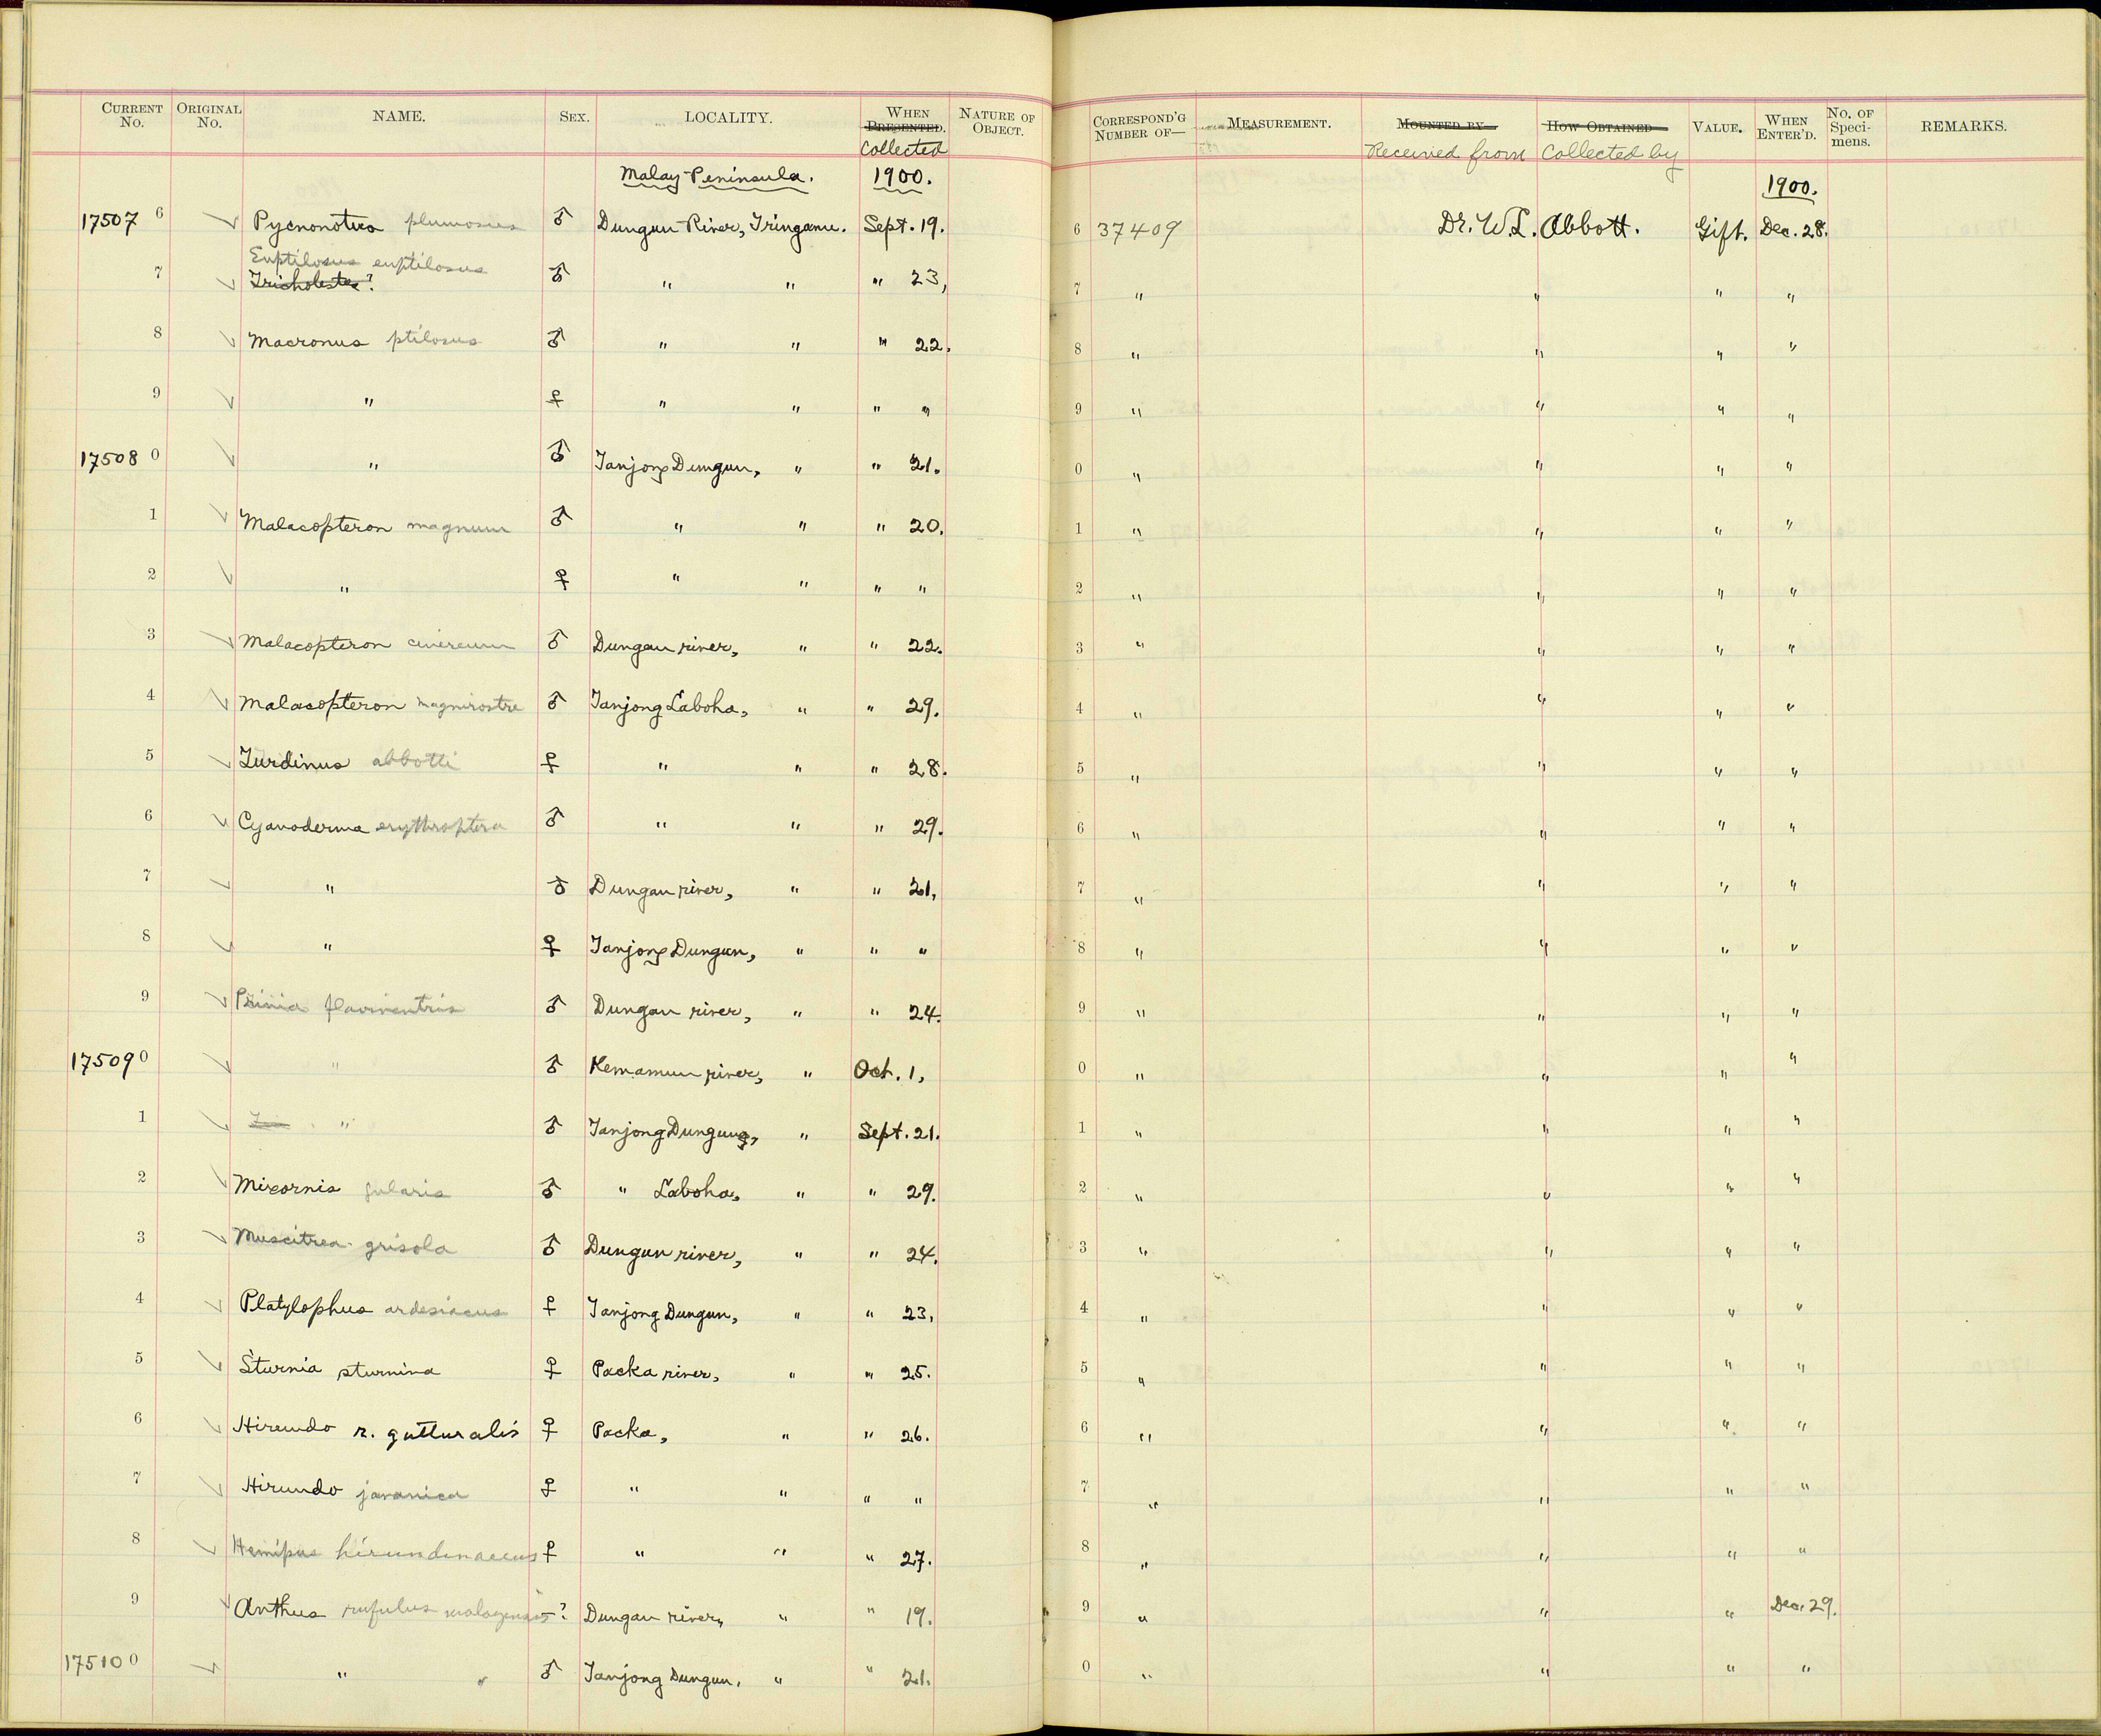 CURRENT No. ORIGINAL No. NAME. SEX. LOCALITY. WHEN PRESENTED. Collected NATURE OF OBJECT. CORRESPOND'G NUMBER OF— MEASUREMENT. MOUNTED BY Received from HOW OBTAINED Collected by VALUE. WHEN ENTER'D. No. OF Speci-mens. REMARKS.
Malay Peninsula. 1900. 1900.
17507 6 Pycnonotus plumosus ♂ Dungun River, Tringanu. Sept. 19. 6 37409 Dr. W. L. Abbott. Gift. Dec. 28.
Euptilosus euptilosus
7 Tricholestes? ♂ " " " 23, 7 " " " "
8 Macronus ptilosus ♂ " " " 22. 8 " " " "
9 " ♀ " " " " 9 " " " "
17508 0 " ♂ Tanjong Dungun, " " 21. 0 " " " "
1 Malacopteron magnum ♂ " " " 20. 1 " " " "
2 " ♀ " " " " 2 " " " "
3 Malacopteron cinereum ♂ Dungan river, " " 22. 3 " " " "
4 Malacopteron magnirostre ♂ Tanjong Laboha, " " 29. 4 " " " "
5 Turdinus abbotti ♀ " " " 28. 5 " " " "
6 Cyanoderma erythroptera ♂ " " " 29. 6 " " " "
7 " ♂ Dungan river, " " 21, 7 " " " "
8 " ♀ Tanjong Dungun, " " " 8 " " " "
9 Prinia flaviventris ♂ Dungan river, " " 24. 9 " " " "
17509 0 " ♂ Kemamun river, " Oct. 1, 0 " " " "
1 " ♂ Tanjong Dungung, " Sept. 21. 1 " " " "
2 Mixornis gularis ♂ " Laboha, " " 29. 2 " " " "
3 Muscitrea grisola ♂ Dungun river, " " 24. 3 " " " "
4 Platylophus ardesiacus ♀ Tanjong Dungun, " " 23, 4 " " " "
5 Sturnia sturnina ♀ Packa river, " " 25. 5 " " " "
6 Hirundo r. gutturalis ♀ Packa, " " 26. 6 " " " "
7 Hirundo javanica ♀ " " " " 7 " " " "
8 Hemipus hirundinaceus ♀ " " " 27. 8 " " " "
9 Anthus rufulus malayensis ? Dungan river, " " 19. 9 " " " Dec. 29.
17510 0 " " ♂ Tanjong Dungun. " " 21. 0 " " " "